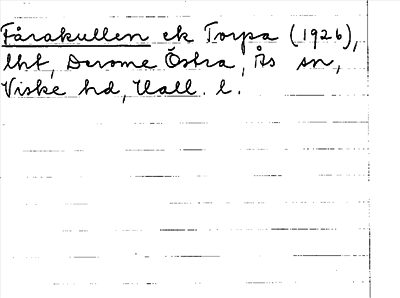 Fårakullen ek Torpa (1926),
lht, Derome Östra, Ås sn,
Viske hd, Hall. l.